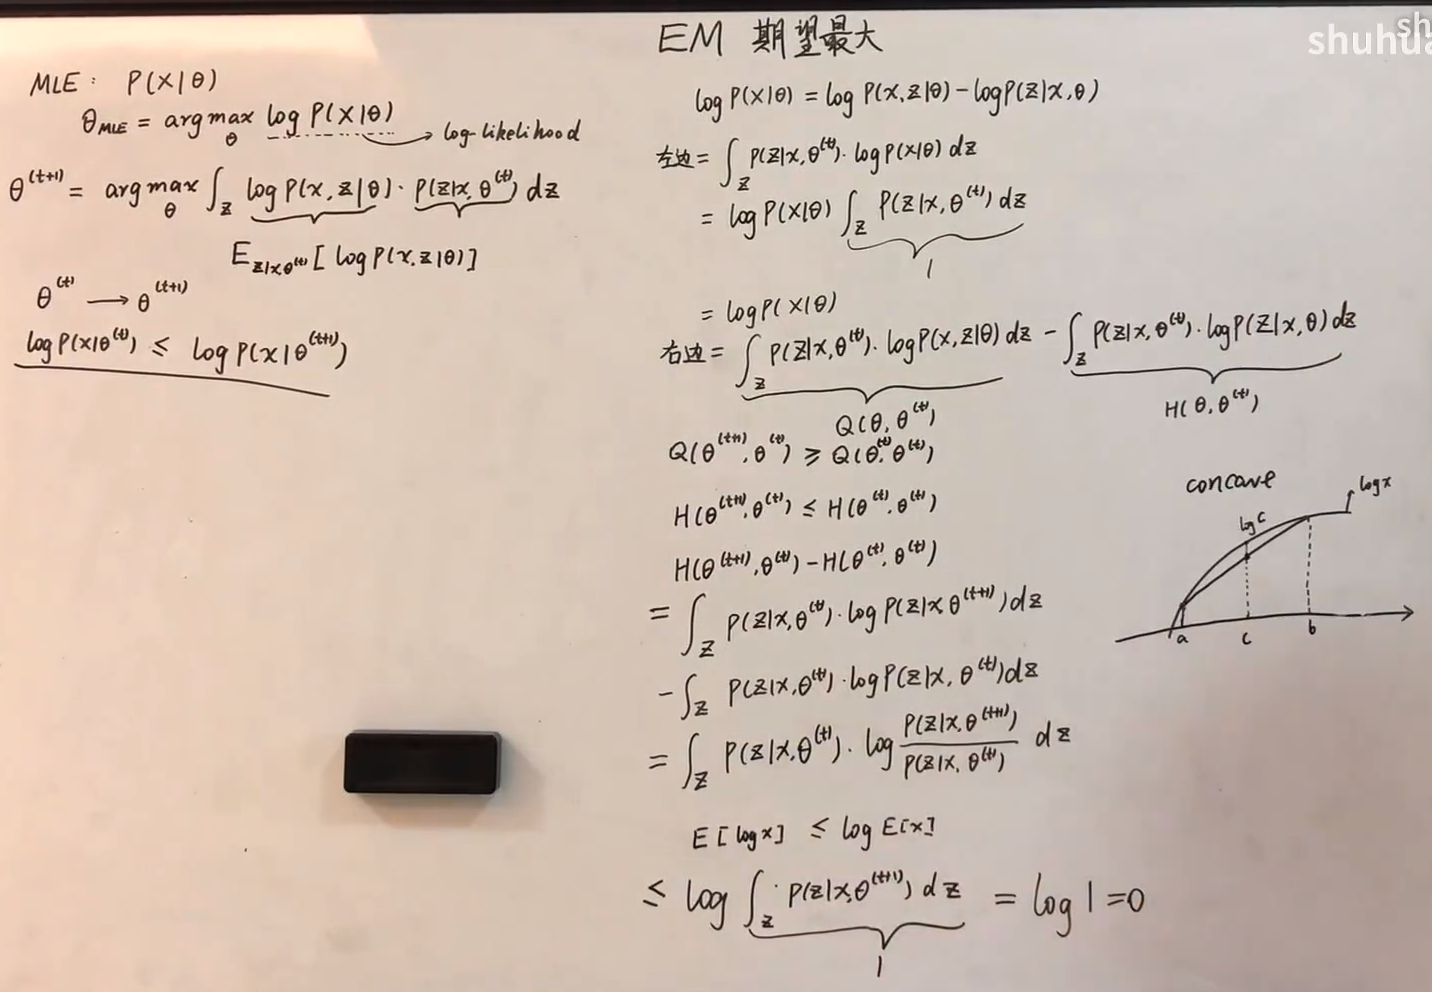 EM 期望最大
MLE: P(X|θ)
θ_MLE = argmax_θ log P(X|θ)
→ log-likelihood
θ^(t+1) = argmax_θ ∫_Z log P(x,z|θ) · P(z|x,θ^(t)) dz
E_{z|x,θ^(t)} [log P(x,z|θ)]
θ^(t) → θ^(t+1)
log P(x|θ^(t)) ≤ log P(x|θ^(t+1))
log P(x|θ) = log P(x,z|θ) - log P(z|x,θ)
左边 = ∫_Z P(z|x,θ^(t)) · log P(x|θ) dz
= log P(x|θ) ∫_Z P(z|x,θ^(t)) dz
1
= log P(x|θ)
右边 = ∫_Z P(z|x,θ^(t)) · log P(x,z|θ) dz - ∫_Z P(z|x,θ^(t)) · log P(z|x,θ) dz
Q(θ,θ^(t))
H(θ,θ^(t))
Q(θ^(t+1),θ^(t)) ≥ Q(θ^(t),θ^(t))
H(θ^(t+1),θ^(t)) ≤ H(θ^(t),θ^(t))
H(θ^(t+1),θ^(t)) - H(θ^(t),θ^(t))
= ∫_Z P(z|x,θ^(t)) · log P(z|x θ^(t+1)) dz
- ∫_Z P(z|x,θ^(t)) · log P(z|x,θ^(t)) dz
= ∫_Z P(z|x,θ^(t)) · log P(z|x,θ^(t+1)) / P(z|x,θ^(t)) dz
E[log x] ≤ log E[x]
≤ log ∫_Z P(z|x,θ^(t+1)) dz = log 1 = 0
1
concave
log x
log c
a c b
shuhua
sh